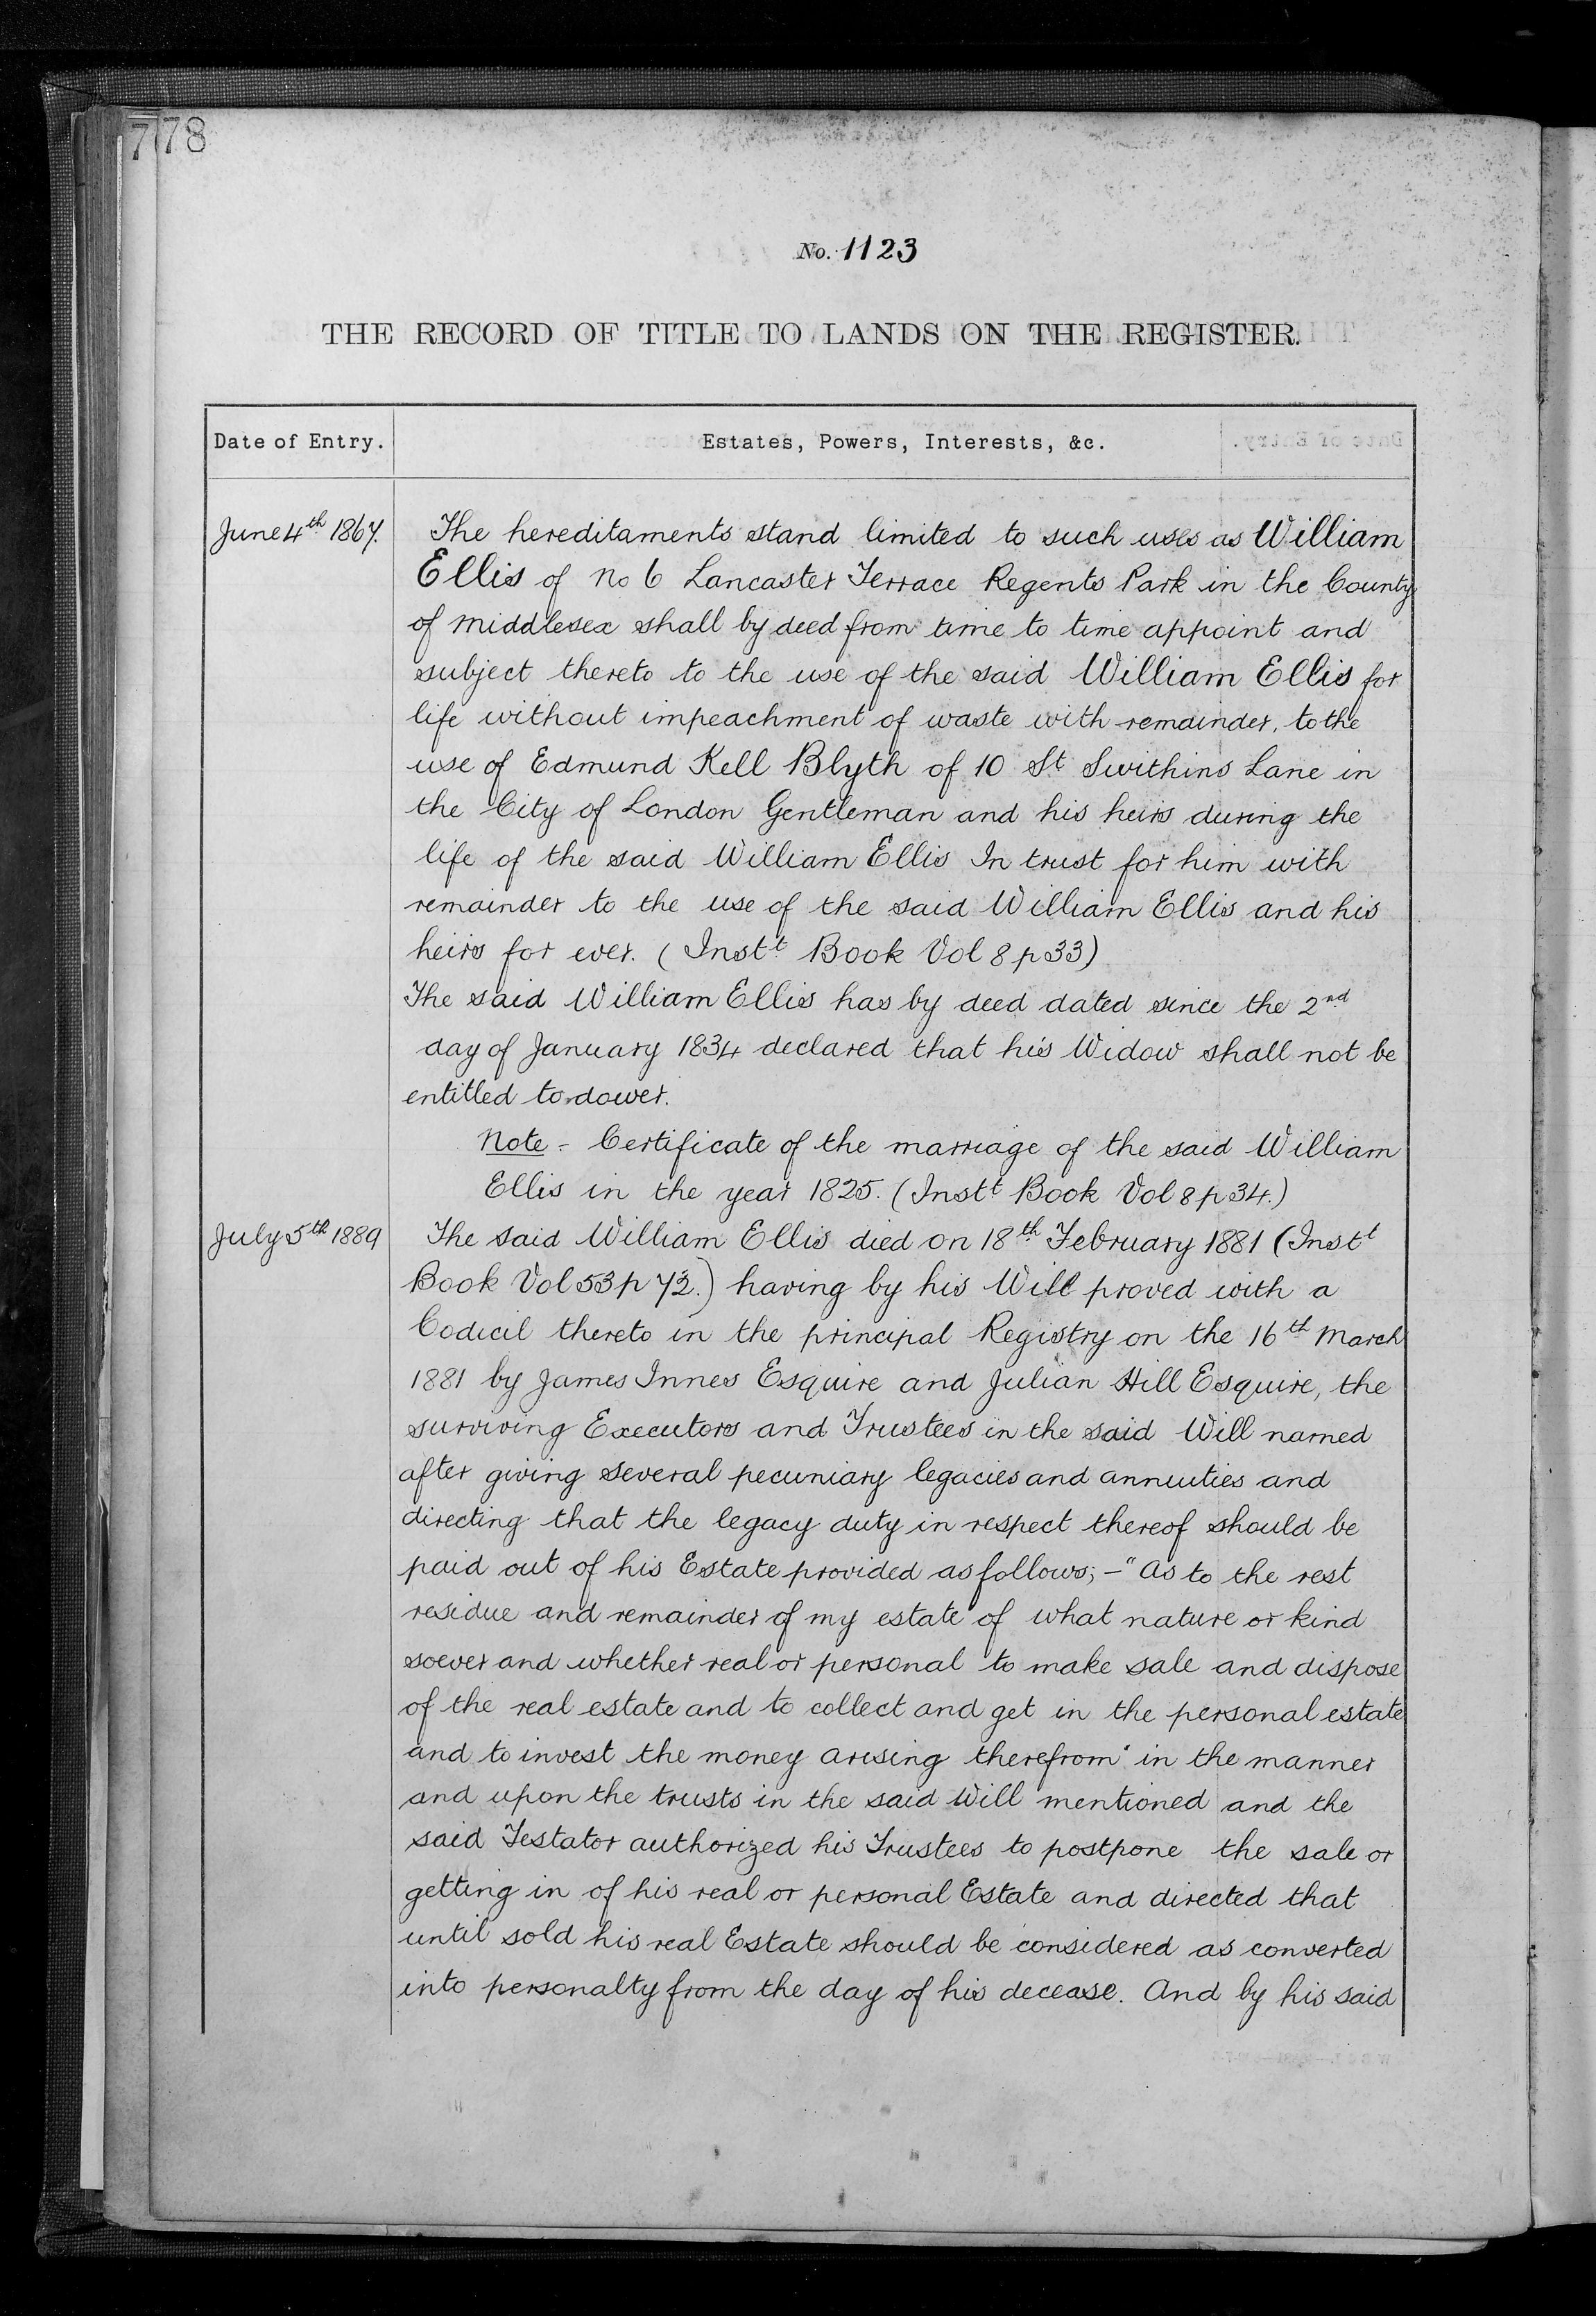 778
No. 1123
THE RECORD OF TITLE TO LANDS ON THE REGISTER.
Date of Entry.
Estates, Powers, Interests, &c.
June 4th 1867.
The hereditaments stand limited to such uses as William
Ellis of No 6 Lancaster Terrace Regents Park in the County
of Middlesex shall by deed from time to time appoint and
subject thereto to the use of the said William Ellis for
life without impeachment of waste with remainder, to the
use of Edmund Kell Blyth of 10 St Swithins Lane in
the City of London Gentleman and his heirs during the
life of the said William Ellis In trust for him with
remainder to the use of the said William Ellis and his
heirs for ever. (Instt Book Vol 8 p 33)
The said William Ellis has by deed dated since the 2nd
day of January 1834 declared that his Widow shall not be
entitled to dower.
Note - Certificate of the marriage of the said William
Ellis in the year 1825. (Instt Book Vol 8 p 34.)
July 5th 1889
The said William Ellis died on 18th February 1881 (Instt
Book Vol 53 p 72.) having by his Will proved with a
Codicil thereto in the principal Registry on the 16th March
1881 by James Innes Esquire and Julian Hill Esquire, the
surviving Executors and Trustees in the said Will named
after giving several pecuniary legacies and annuities and
directing that the legacy duty in respect thereof should be
paid out of his Estate provided as follows; - "As to the rest
residue and remainder of my estate of what nature or kind
soever and whether real or personal to make sale and dispose
of the real estate and to collect and get in the personal estate
and to invest the money arising therefrom" in the manner
and upon the trusts in the said Will mentioned and the
said Testator authorized his Trustees to postpone the sale or
getting in of his real or personal Estate and directed that
until sold his real Estate should be considered as converted
into personalty from the day of his decease. And by his said